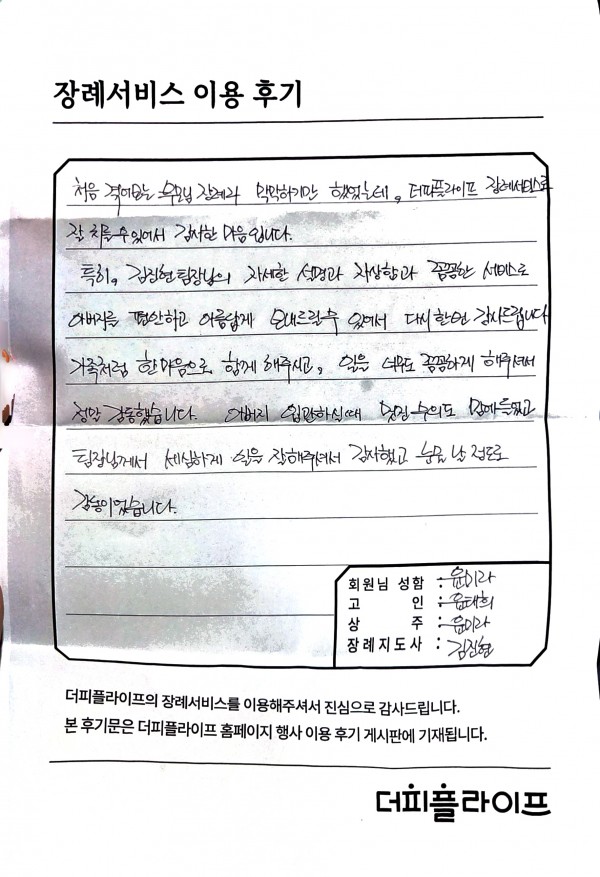 장례서비스 이용 후기
처음 겪어보는 부모님 장례라 막막하기만 했었는데, 더피플라이프 장례서비스로
잘 치를수 있어서 감사한 마음입니다.
특히, 김진현팀장님의 자세한 설명과 자상함과 꼼꼼한 서비스로
아버지를 편안하고 아름답게 보내드릴수 있어서 다시한번 감사드립니다
가족처럼 한마음으로 함께 해주시고, 일을 너무도 꼼꼼하게 해주셔서
정말 감동했습니다. 아버지 입관하실때 멋진 수의도 맘에들었고
팀장님께서 세심하게 일을 잘해주셔서 감사했고 눈물 날 정도로
감동이었습니다.
회원님 성함 : 윤미라
고 인 : 윤태희
상 주 : 윤미라
장례지도사 : 김진현
더피플라이프의 장례서비스를 이용해주셔서 진심으로 감사드립니다.
본 후기문은 더피플라이프 홈페이지 행사 이용 후기 게시판에 기재됩니다.
더피플라이프